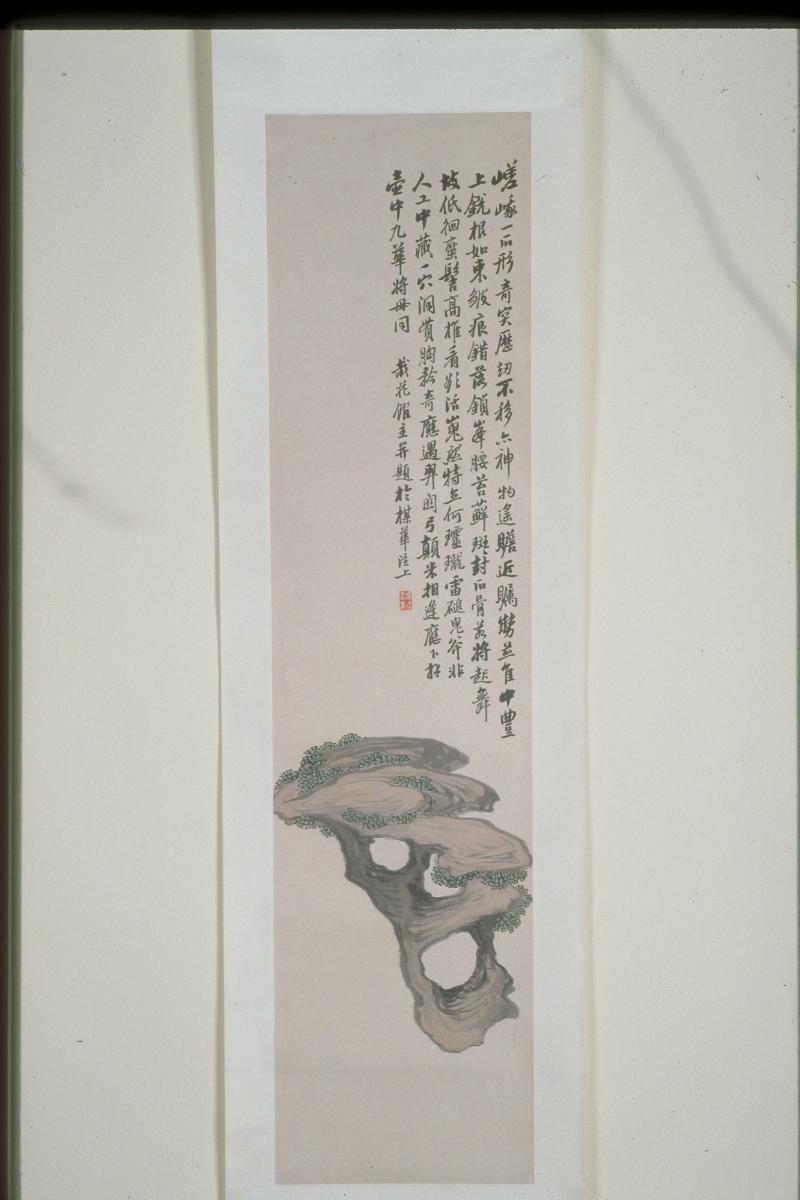 嵯峨一石形奇突歷劫不移六神物遙瞻近矚勢並隹中豐
上銳根如束皴痕錯落鎖峯腰苔蘚斑封石骨若將起舞
故低徊蠻髻高堆看欲活嵬然特立何瓏雷磓鬼斧非
人工中藏一穴洞貫胸矜奇應遇羿關弓顛米相逢應下拜
壺中九華將毋同 栽花館主并題於楳華上